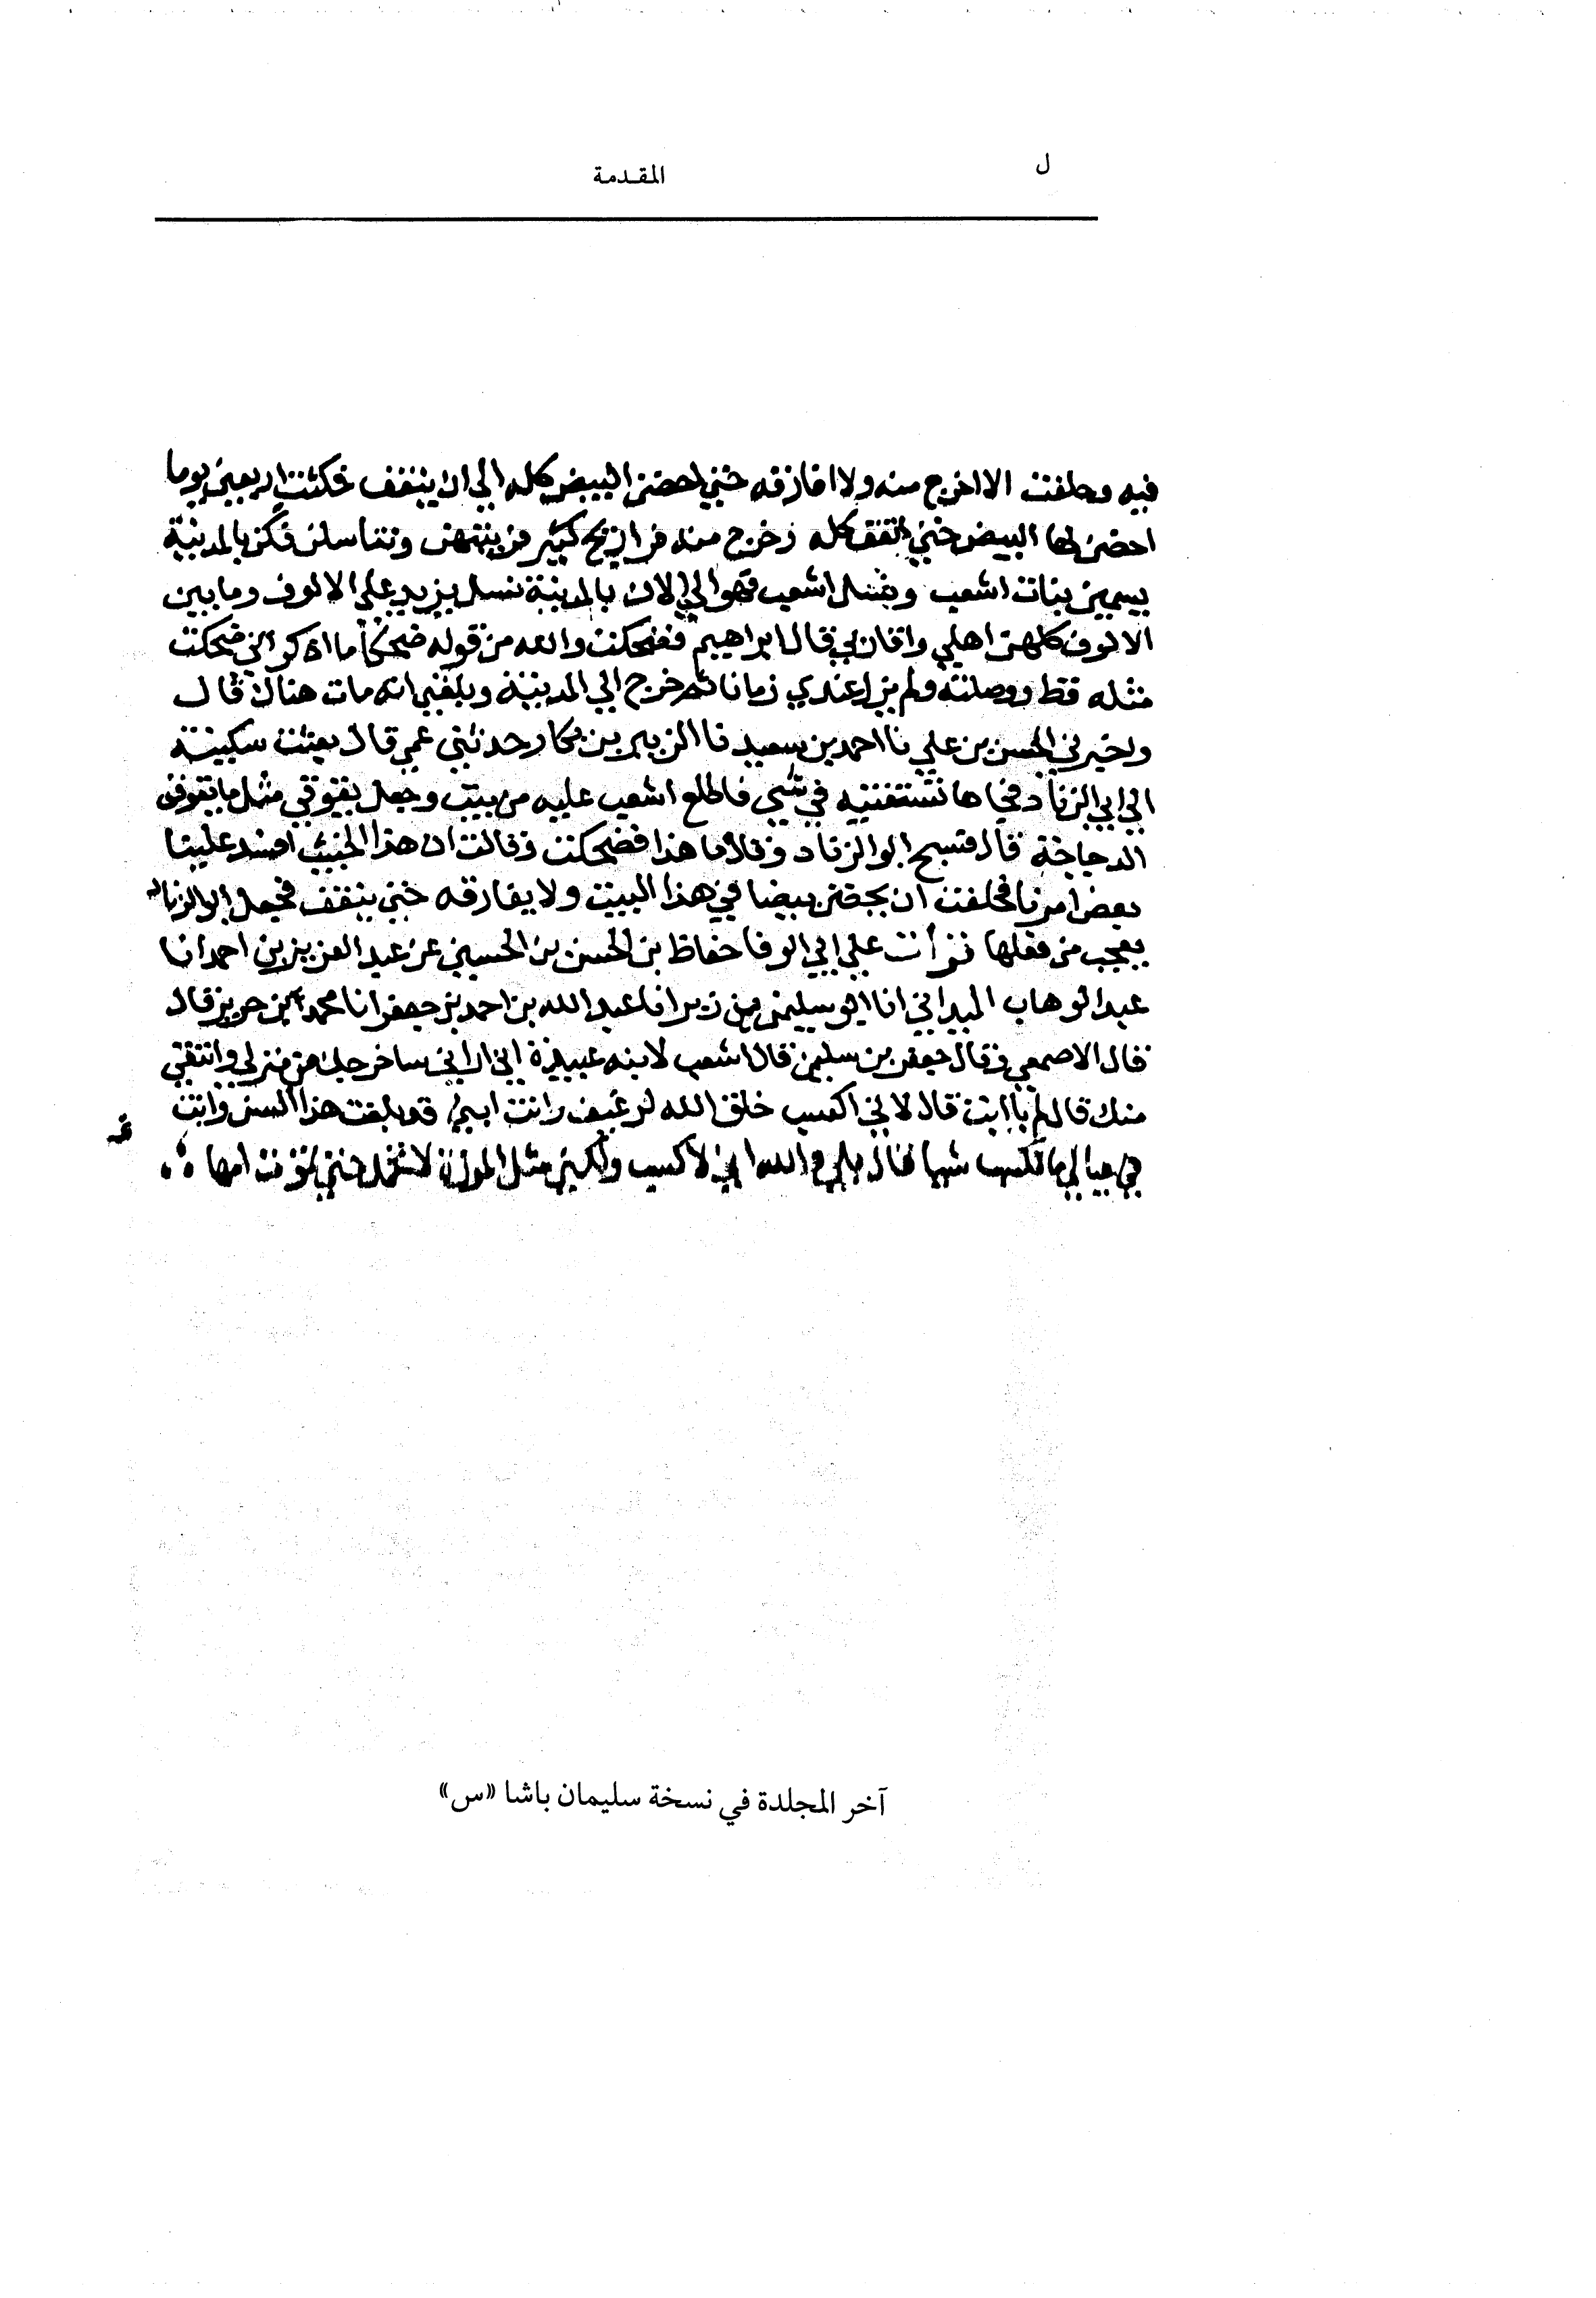 ل
المقدمة
فيه وحلفت الا اخرج منه ولا افارقه حتي احضن البيض كله الي ان ينقف فمكثت اربعين يوما
احضن لها البيض حتي انقف كله وخرج منه فراريج كثير فربيتهن وتناسلن فكن بالمدينة
يسمين بنات اشعب ونسل اشعب فهو الي الان بالمدينة نسل يزيد علي الالوف وما بين
الالوف كلهن اهلي واقاربي قال ابراهيم فضحكت والله من قوله ضحكا ما اذكر اني ضحكت
مثله قط ووصلته ولم يزل عندي زمانا ثم خرج الي المدينة وبلغني انه مات هناك قال
واخبرني الحسن بن علي نا احمد بن سعيد نا الزبير بن بكار حدثني عمي قال بعثت سكينة
الي ابي الزناد فجاها تستفتيه في شي فاطلع اشعب عليه من بيت وجعل يقوقي مثل ما تقوقي
الدجاجة قال فسبح ابو الزناد وقال ما هذا فضحكت وقالت ان هذا الخبيث افسد علينا
بعض امرنا فحلفت ان يحضن بيضا في هذا البيت ولا يفارقه حتي ينقف فجعل ابو الزناد
يعجب من فعلها قرأت علي ابي الوفا حفاظ بن الحسن بن الحسين عن عبد العزيز بن احمد انا
عبد الوهاب الميداني انا ابو سليمن بن زبر انا عبد الله بن احمد بن جعفر انا محمد بن جرير قال
قال الاصمعي وقال جعفر بن سليمن قال اشعب لابنه عبيدة اني اراني ساخرجك من منزلي وانتفي
منك قال لم يا ابت قال لاني اكسب خلق الله لرغيف وانت ابني قد بلغت هذا السن وانت
في عيالي ما تكسب شيا قال بلي والله اني لاكسب ولكن مثل الموزة لا تحمل حتي تموت امها
آخر المجلدة في نسخة سليمان باشا «س»